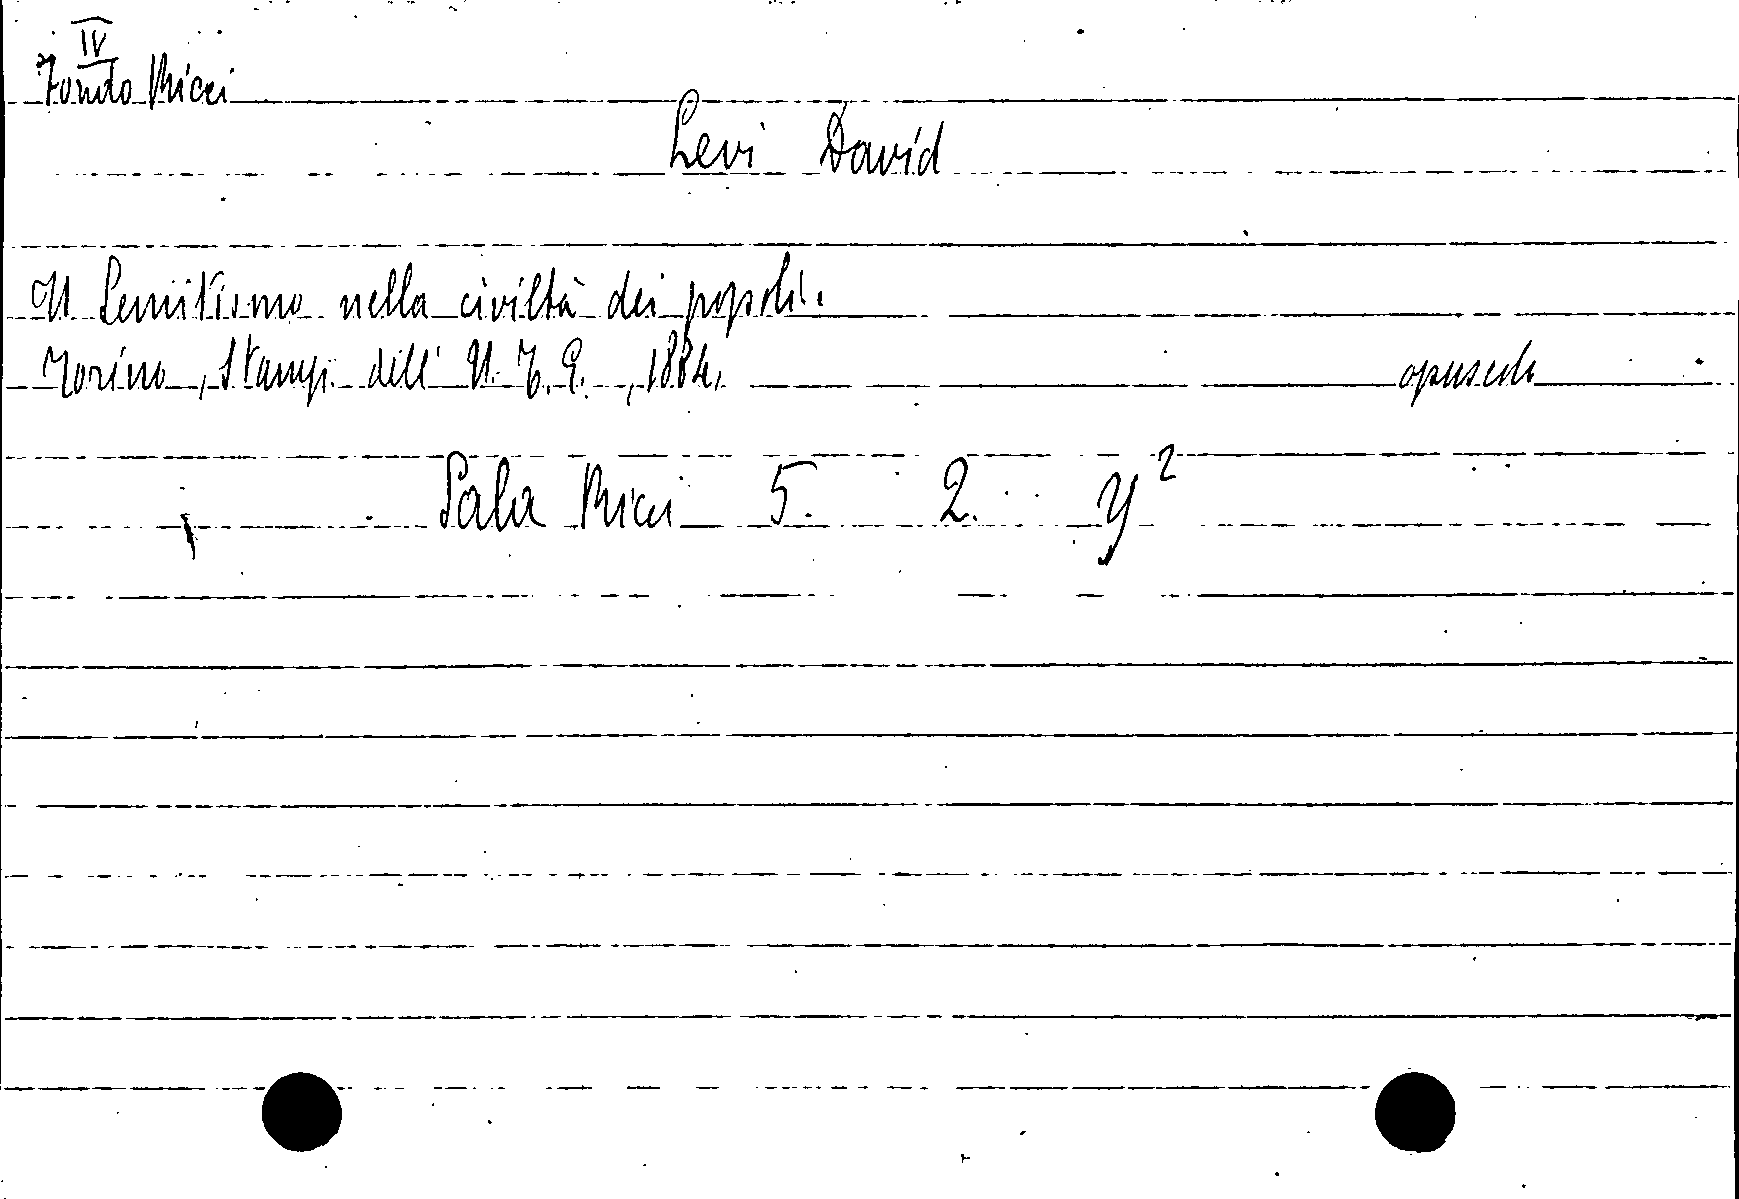 IV
Fondo Ricci
Levi David
Il Semitismo nella civiltà dei popoli.
Torino, Stamp. dell' U.T.E., 1884, opuscolo
Sala Ricci 5. 2. y²